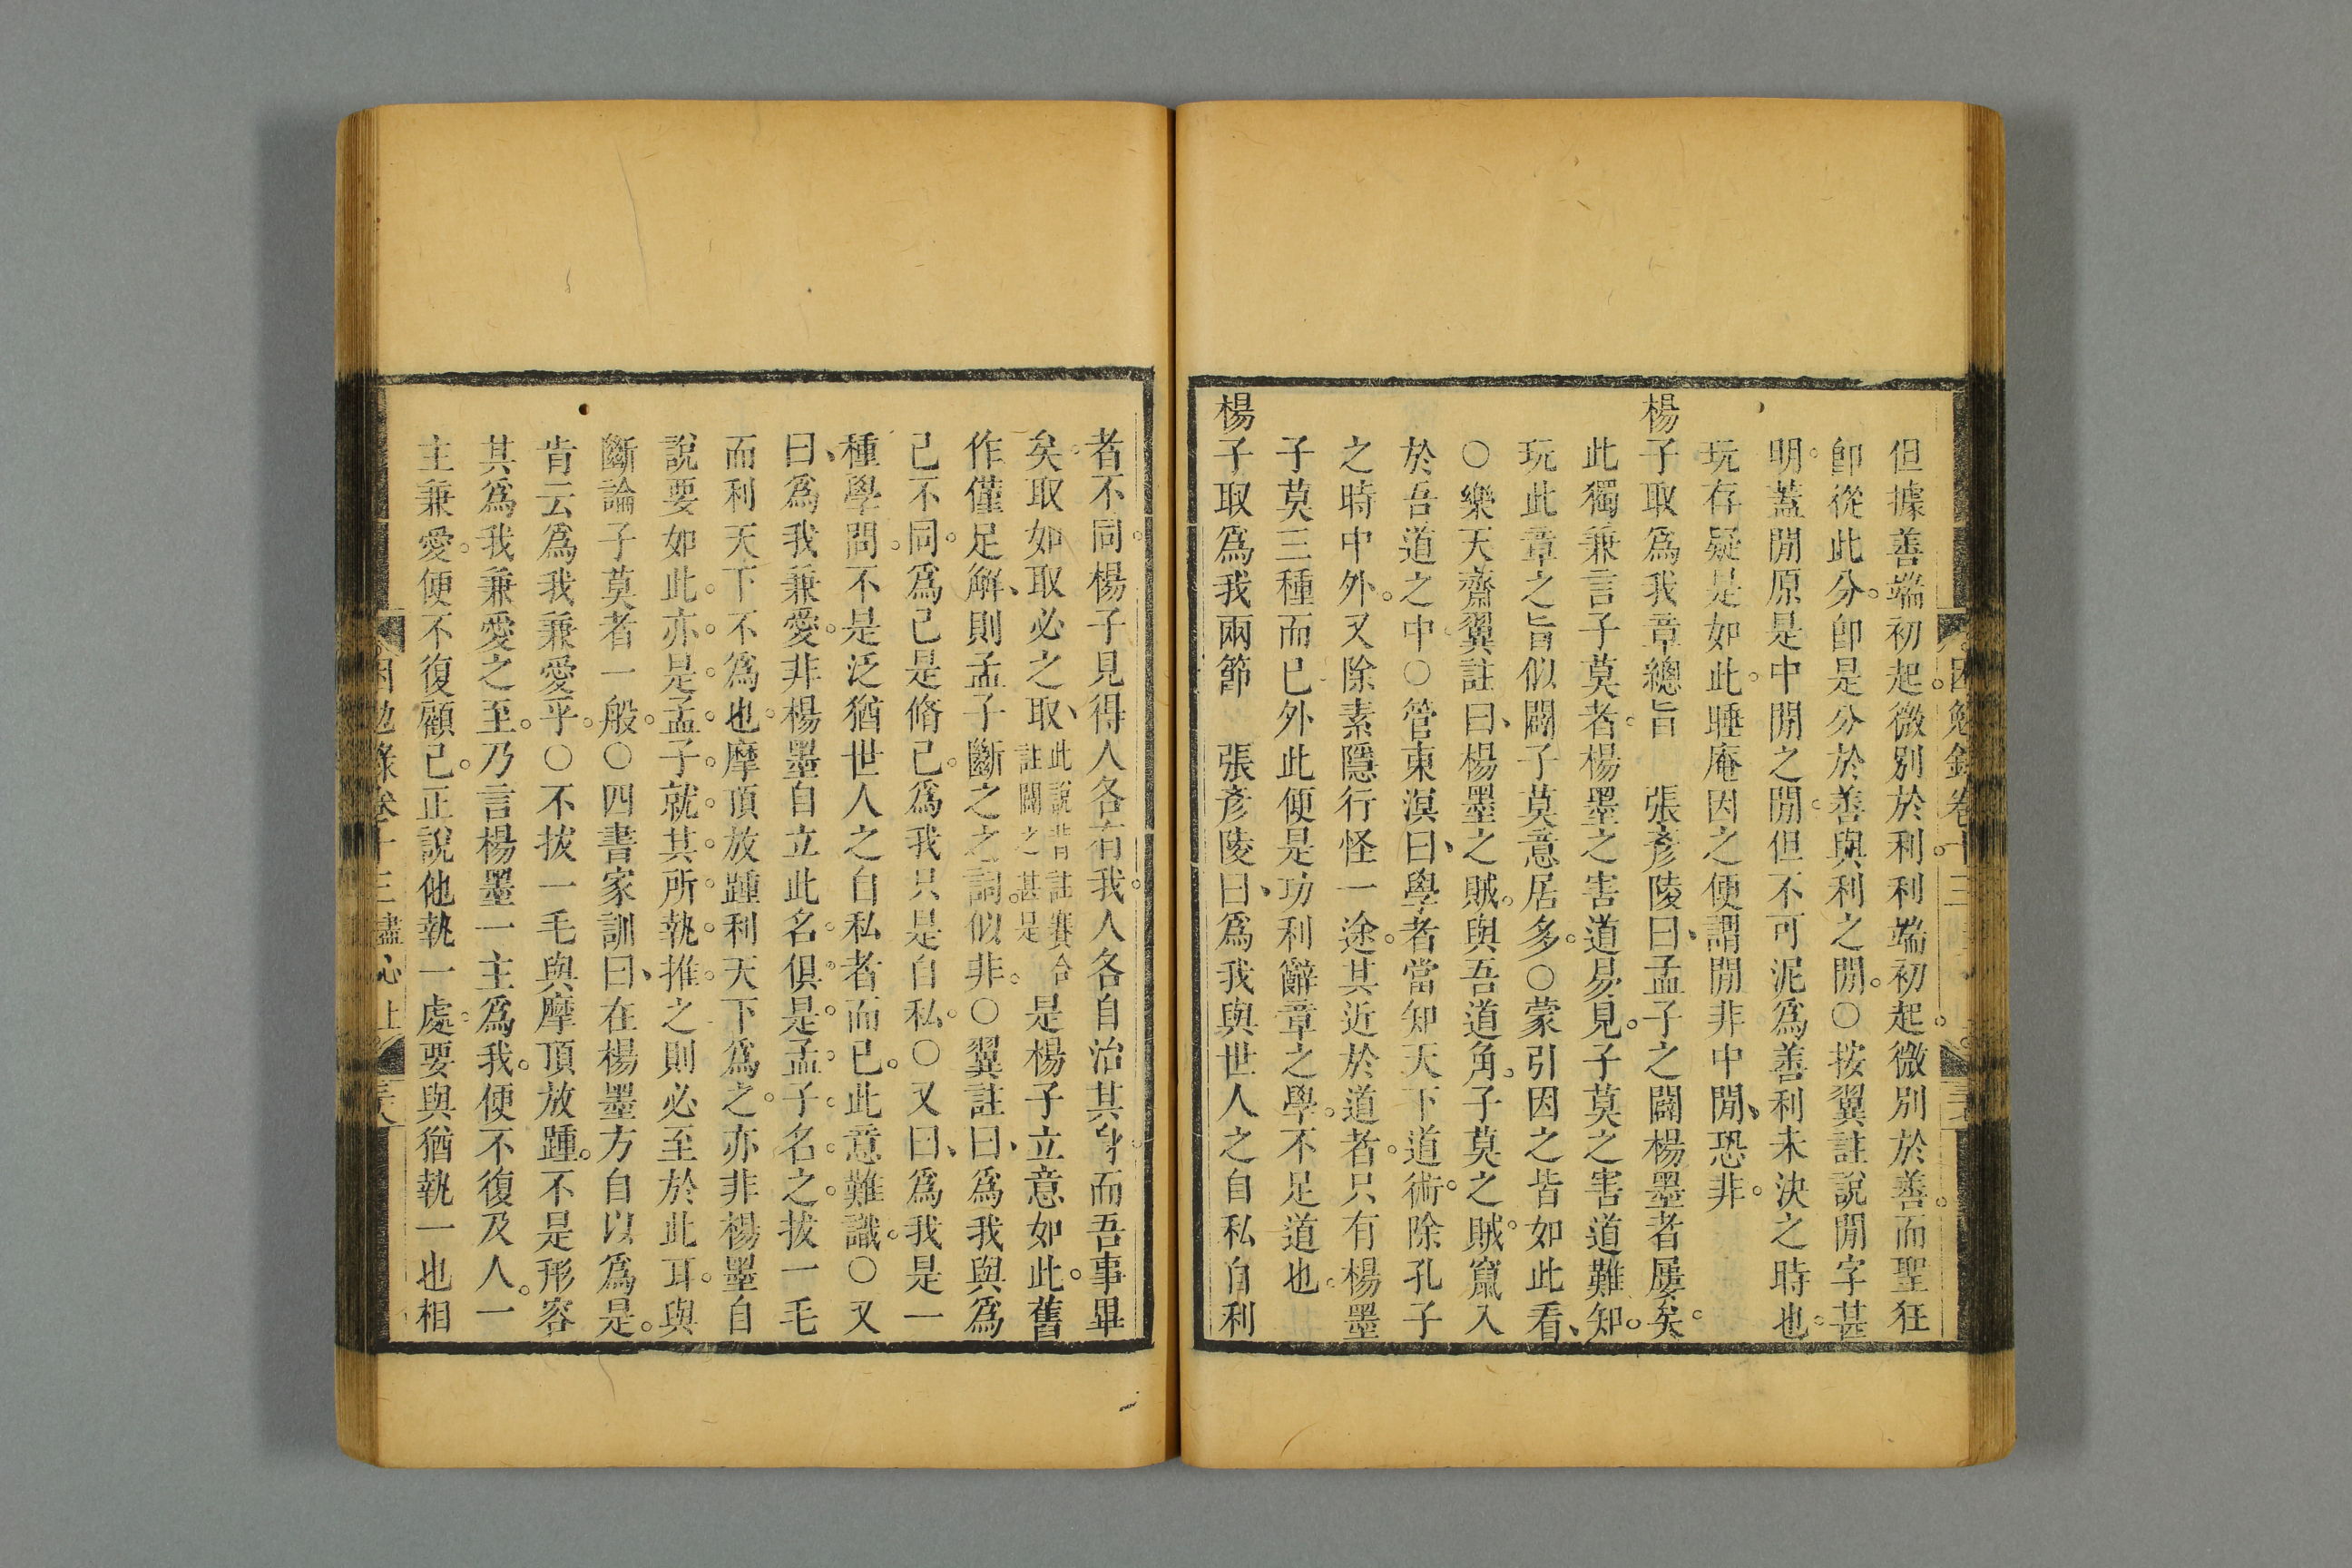 但據善端初起。微別於利。利端初起。微別於善。而聖狂
卽從此分。卽是分於善與利之閒。○按翼註說閒字甚
明。蓋閒原是中閒之閒。但不可泥爲善利未決之時也。
玩存疑是如此。睡庵因之便謂閒非中閒、恐非。
楊子取爲我章總旨　張彥陵曰、孟子之闢楊墨者屢矣。
此獨兼言子莫者。楊墨之害道易見。子莫之害道難知。
玩此章之旨似闢子莫意居多。○蒙引因之皆如此看、
○樂天齋翼註曰、楊墨之賊。與吾道角。子莫之賊。竄入
於吾道之中○管東溟曰、學者當知天下道術。除孔子
之時中外。又除素隱行怪一途。其近於道者。只有楊墨
子莫三種而已外此便是功利辭章之學。不足道也。
楊子取爲我兩節　張彥陵曰、爲我與世人之自私自利
者不同。楊子見得人各有我。人各自治其身。而吾事畢
矣。取如取必之取、此說背註賽合註闢之甚是 是楊子立意如此。舊
作僅足解、則孟子斷之之詞。似非。○翼註曰、爲我與爲
己不同。爲己是脩己。爲我只是自私。○又曰、爲我是一
種學問。不是泛猶世人之自私者而已。此意難識。○又
曰、爲我兼愛。非楊墨自立此名。俱是孟子名之。拔一毛
而利天下不爲也。摩頂放踵利天下爲之。亦非楊墨自
說要如此。亦是孟子就其所執推之則必至於此耳。與
斷論子莫者一般。○四書家訓曰、在楊墨方自以爲是。
肯云爲我兼愛乎。○不拔一毛與摩頂放踵。不是形容
其爲我兼愛之至。乃言楊墨一主爲我。便不復及人。一
主兼愛。便不復顧己。正說他執一處。要與猶執一也相
困勉錄卷十三盡心上